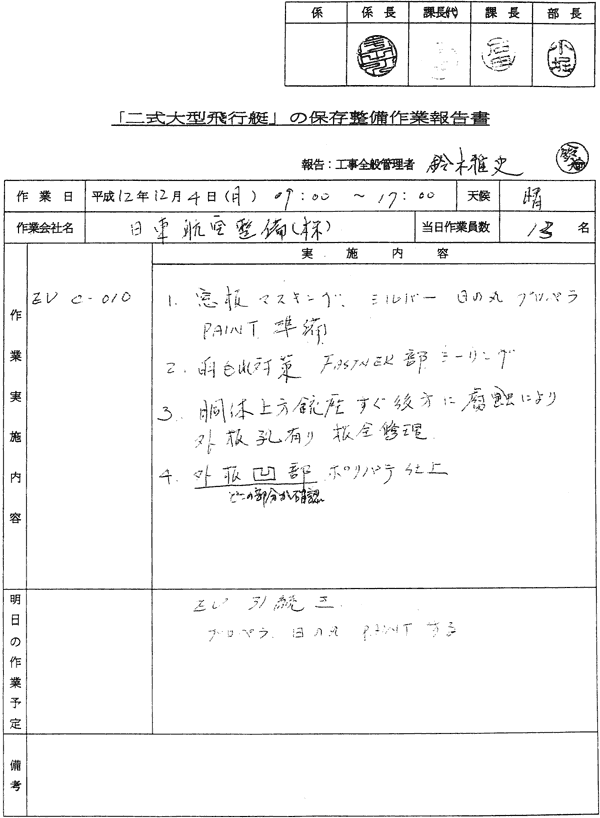 係 係長 課長(代) 課長 部長
小堀
「二式大型飛行艇」の保存整備作業報告書
報告:工事全般管理者 鈴木雅史
作業日 平成12年12月4日(月) 09:00 ~ 17:00 天候 晴
作業会社名 日東航空整備(株) 当日作業員数 13 名
作業実施内容 実施内容
EU C-010
1. 窓板マスキング、シルバー 日の丸 プロペラ
PAINT 準備
2. 雨対策 FASTNER部シーリング
3. 胴体上方銃座すぐ後方に腐蝕により
外板孔有り 板金修理
4. 外板凹部 ポリパテ仕上
どこの部分か確認
明日の作業予定
EU 引続き
プロペラ、日の丸 PAINT する
備考